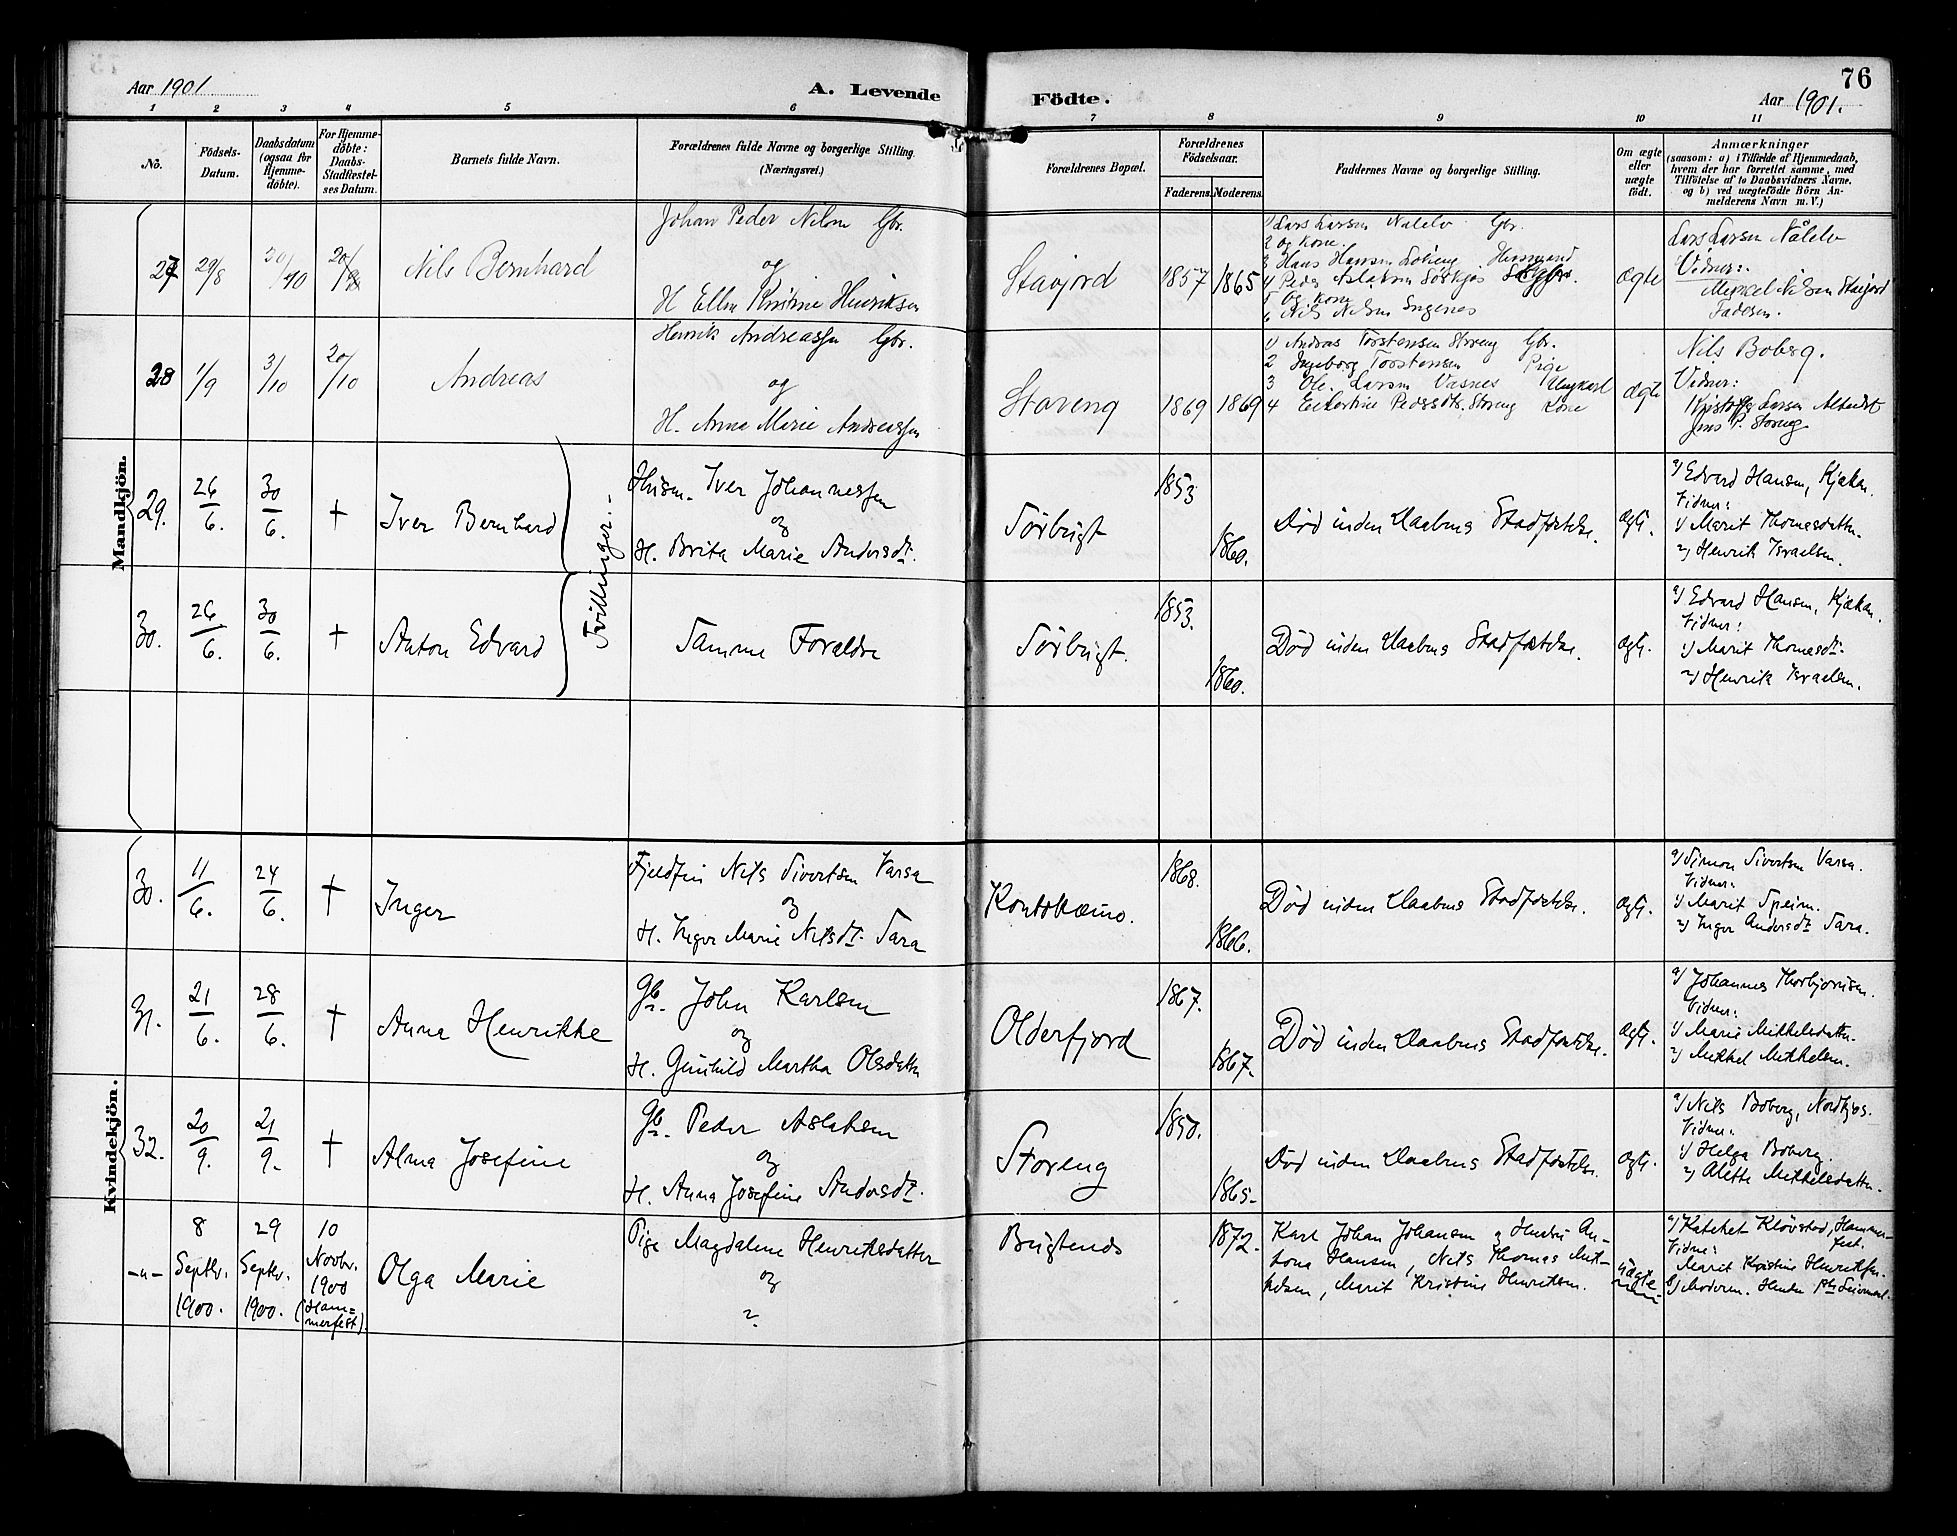 76
Aar 1901.
A. Levende
Födte.
Aar 1901.
1 2 3 4 5 6 7 8 9 10 11
No.
Födsels-
Datum.
Daabsdatum
(ogsaa for
Hjemme-
döbte).
For Hjemme-
döbte:
Daabs-
Stadfæstel-
ses Datum.
Barnets fulde Navn.
Forældrenes fulde Navne og borgerlige Stilling.
(Næringsvei.)
Forældrenes Bopæl.
Forældrenes
Födselsaar.
Faderens.
Moderens.
Faddernes Navne og borgerlige Stilling.
Om ægte
eller
uægte
födt.
Anmærkninger
(saasom: a) i Tilfælde af Hjemmedaab,
hvem der har forrettet samme, med
Tilföielse af to Daabsvidners Navne.
og b) ved uægtefödte Börn An-
melderens Navn m. V.)
Mandkjön.
27 29/8
Nils Bernhard
Johan Peder Nilsen Gbr.
og
H. Ellen Kristine Henriksen
Stavjord
1857 1865
1) Lars Larsen Nålelv Gbr.
2 og Kone.
3 Hans Hansen
4 Peder Aslaksen Sörkjos
5 Og Kone
6 Nils Nilsen
Ægte
Lars Larsen Nålelv
Vidner:
Nilsen Stavjord
28 1/9 3/10 20/10
Andreas
Henrik Andreassen Gbr.
og
H. Anna Marie Andreassen
Storeng
1869 1869
1) Andras Torstensen Storeng Gbr.
2 Ingeborg Torstensen Pige
3 Ole Larsen Vasnes Ungkarl
4 Pedersdt. Storeng Kone
Ægte
Nils Boberg.
Vidner:
Larsen
Jens P. Storeng
29. 26/6. 30/6. †
Iver Bernhard
Tvillinger.
Husm. Iver Johannessen
og
H. Brita Marie Andersdt.
Sörbugt
1853
1860.
Død inden Daabens Stadfæstelse.
ægt.
a) Edvard Hansen, Kjækan.
Vidner:
1) Marit Thomasdatter.
2) Henrik Israelsen.
30. 26/6. 30/6. †
Anton Edvard
Samme Forældre
Sörbugt.
1853.
1860.
Død inden Daabens Stadfæstelse.
ægt.
a) Edvard Hansen, Kjækan.
Vidner:
1) Marit Thomasdt.
2) Henrik Israelsen.
Kvindekjön.
30. 11/6. 24/6. †
Inger
Fjeldfin Nils Sivertsen Varsa
og
H. Inger Marie Nilsdt. Sara
Kontokæino.
1868.
1866.
Død inden Daabens Stadfæstelse.
ægt.
a) Simon Sivertsen Varsa.
Vidner:
1) Marit Speim.
2) Inger Andersdt. Sara.
31. 21/6. 28/6. †
Anna Henrikke
Gbr. John Karlsen
og
H. Gunhild Martha Olsdatter
Olderfjord
1867.
1867.
Død inden Daabens Stadfæstelse.
ægt.
a) Johannes Thorbjørnsen.
Vidner:
1) Marie Mikkelsdatter.
2) Mikkel Mikkelsen.
32. 20/9. 21/9. †
Alma Josefine
Gbr. Peder Aslaksen
og
H. Anna Josefine Andersdt.
Storeng
1850.
1865.
Død inden Daabens Stadfæstelse.
ægt.
a) Nils Boberg, Nordkjos.
Vidner:
1) Helga Boberg.
2) Alette Mikkelsdatter.
-"-
8
Septbr.
1900.
29
Septbr.
1900.
10
Novbr.
1900
(Ham=
merfest).
Olga Marie
Pige Magdalene Henriksdatter
og
?
Bugtenes
1872.
Karl Johan Johansen, Hustru An-
tona Hansen, Nils Thomas Mik-
kelsen, Marit Kristine Henriksen.
uægte
a) Kateket Kløvstad, Hammer-
fest.
Vidne:
Marit Kristine Henriksen.
b) Moderen.